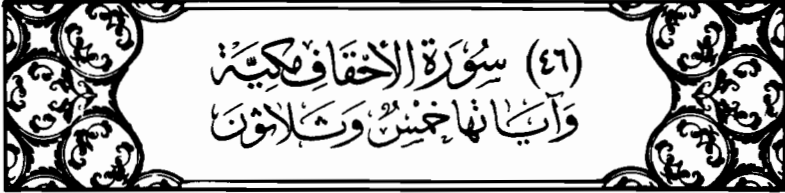 (٤٦) سُورَةُ الأَحْقَافِ مَكِيَّة
وَآيَاتُهَا خَمْسٌ وَثَلاثُونَ